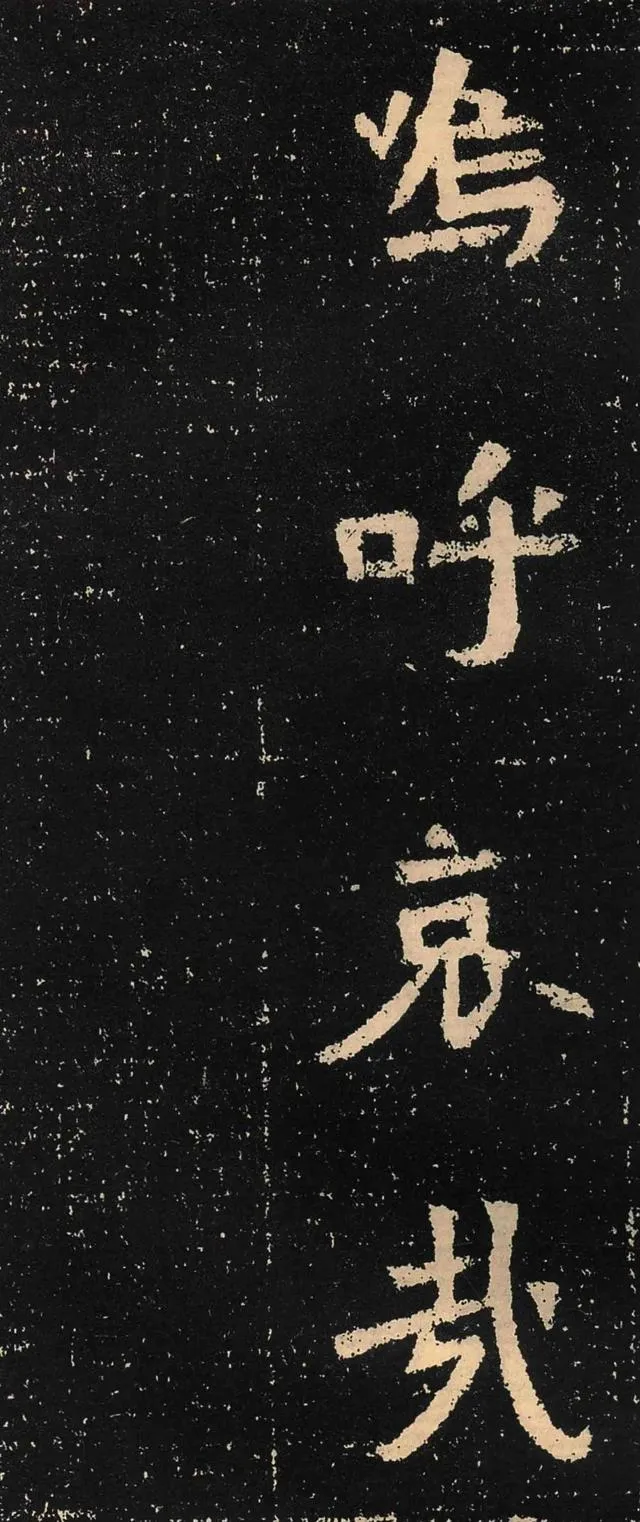 嗚呼哀哉